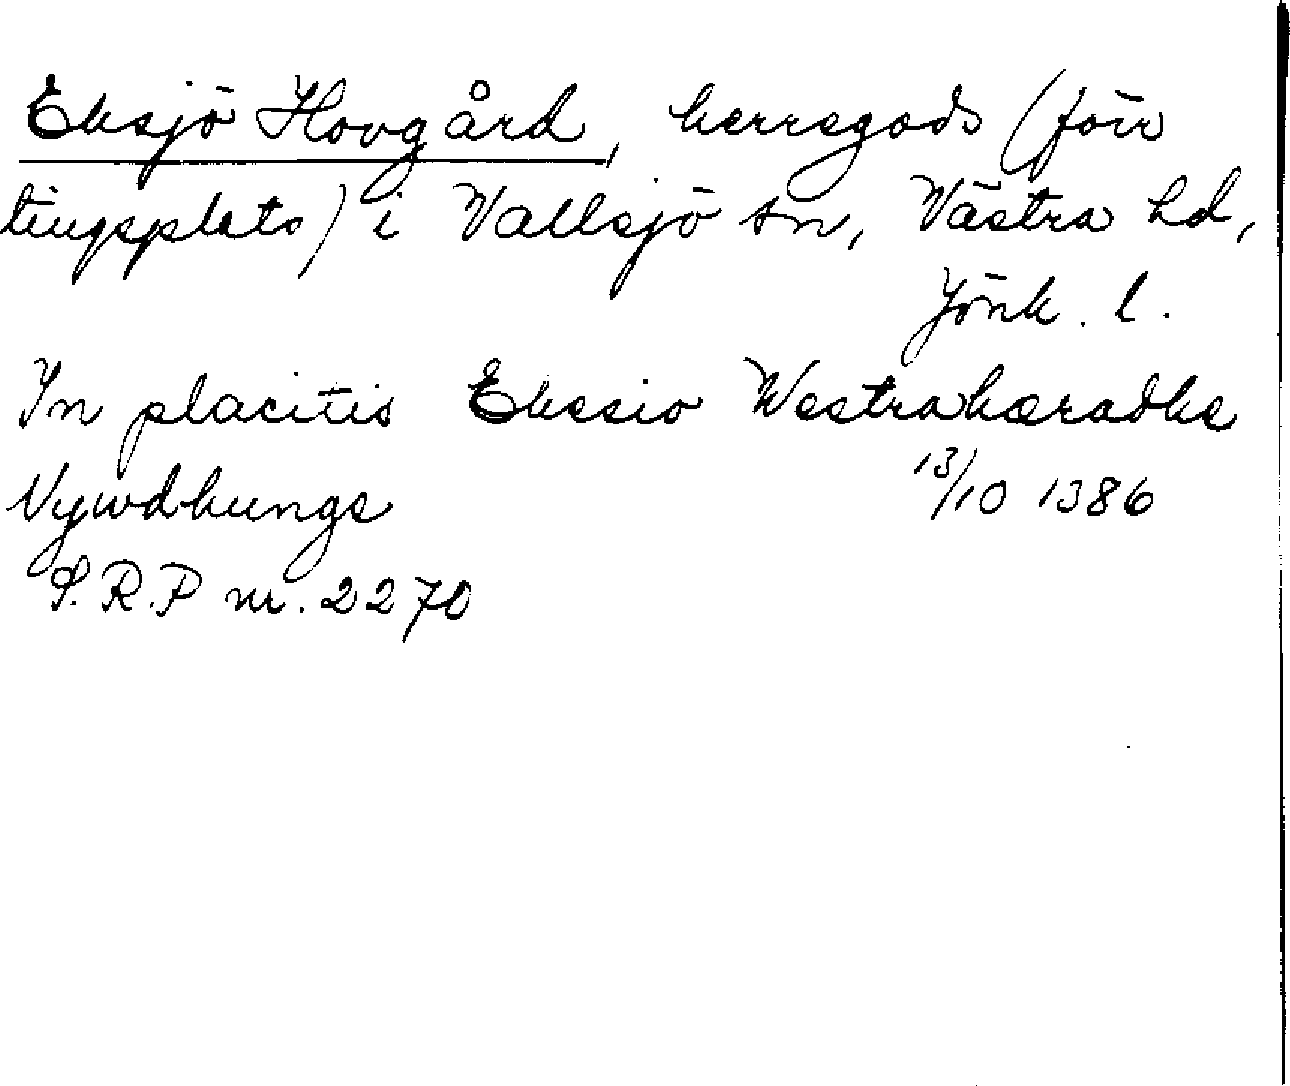 Eksjö Hovgård, herregods (förr
tingsplats) i Vallsjö sn, Västra hd,
Jönk. l.
In placitis Ekesio Westrahæradhe
Nywdhungs 13/10 1386
S.R.P nr. 2270